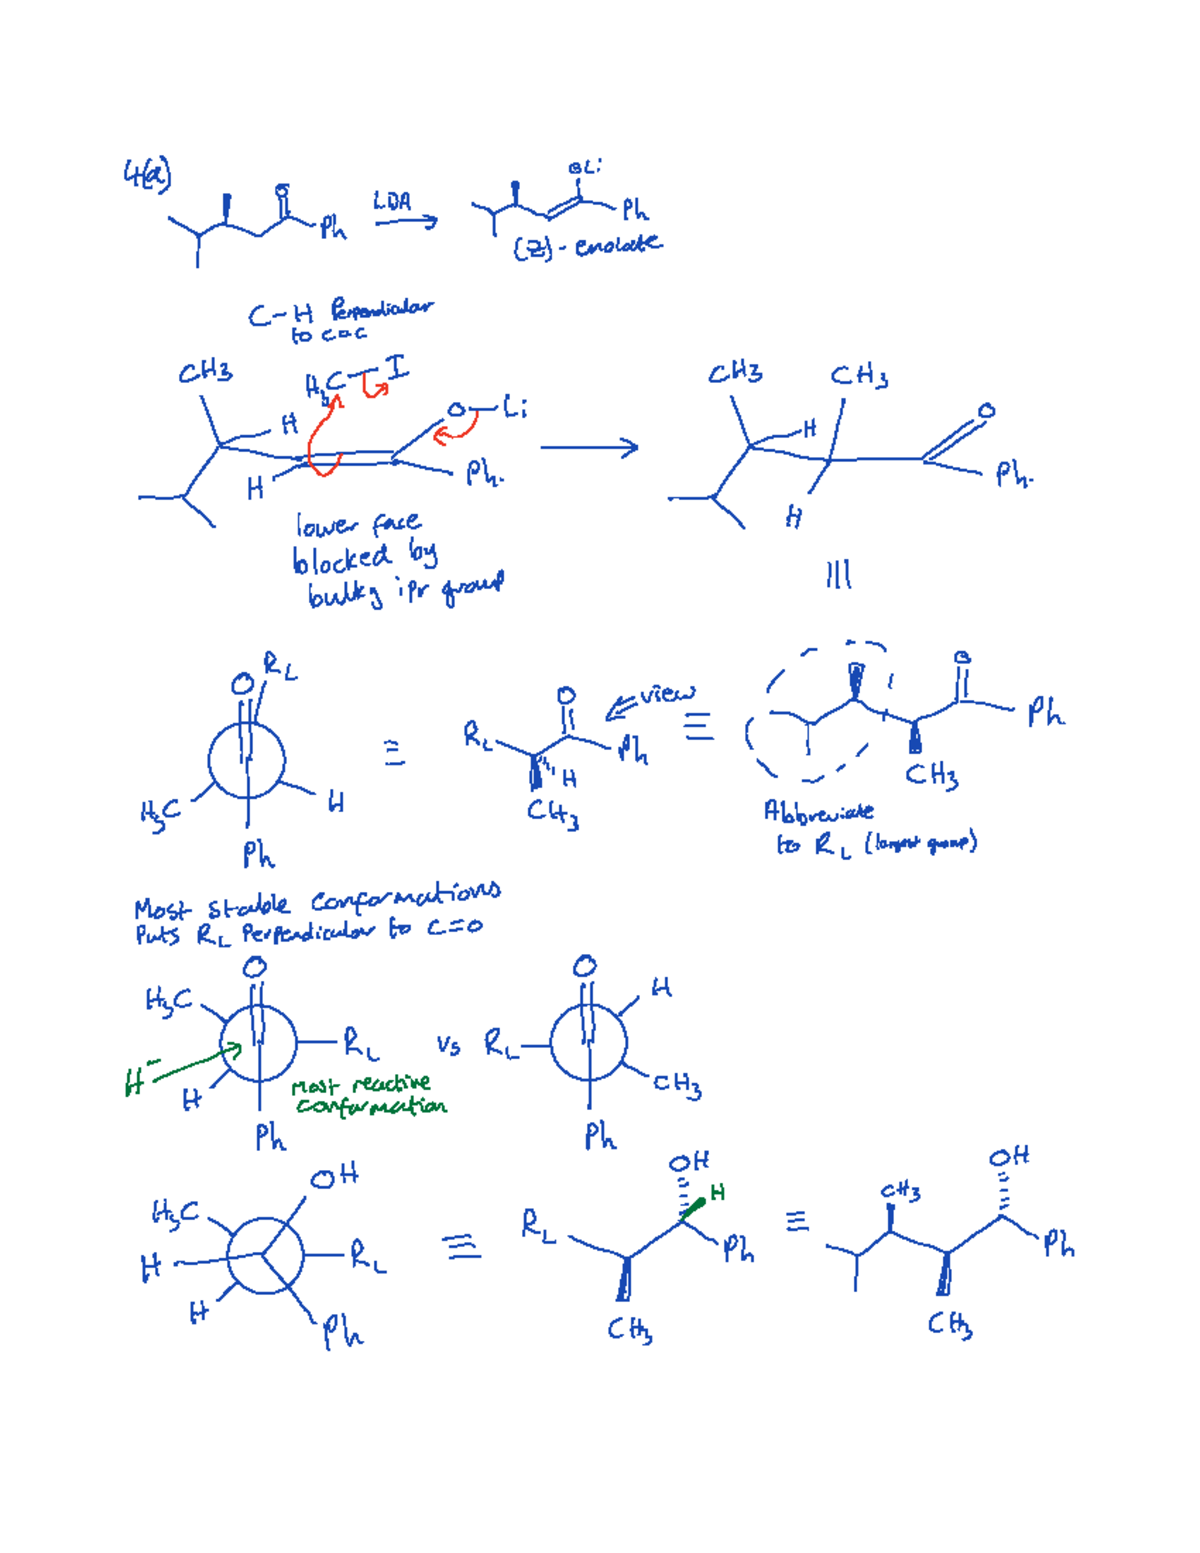 4(a)
O
Ph
LDA
OLi
Ph
(Z) - enolate
C-H Perpendicular
to C=C
CH3
H3C I
H
O Li
H
Ph.
CH3
CH3
H
O
H
Ph.
lower face
blocked by
bulky ipr group
O
RL
H3C
H
Ph
RL
O
view
Ph
H
CH3
O
Ph
CH3
Abbreviate
to RL (largest group)
Most stable conformations
Puts RL Perpendicular to C=O
O
H3C
RL
H-
H
Most reactive
conformation
Ph
vs
O
H
RL
CH3
Ph
OH
H3C
H
RL
H
Ph
OH
H
RL
Ph
CH3
OH
CH3
Ph
CH3